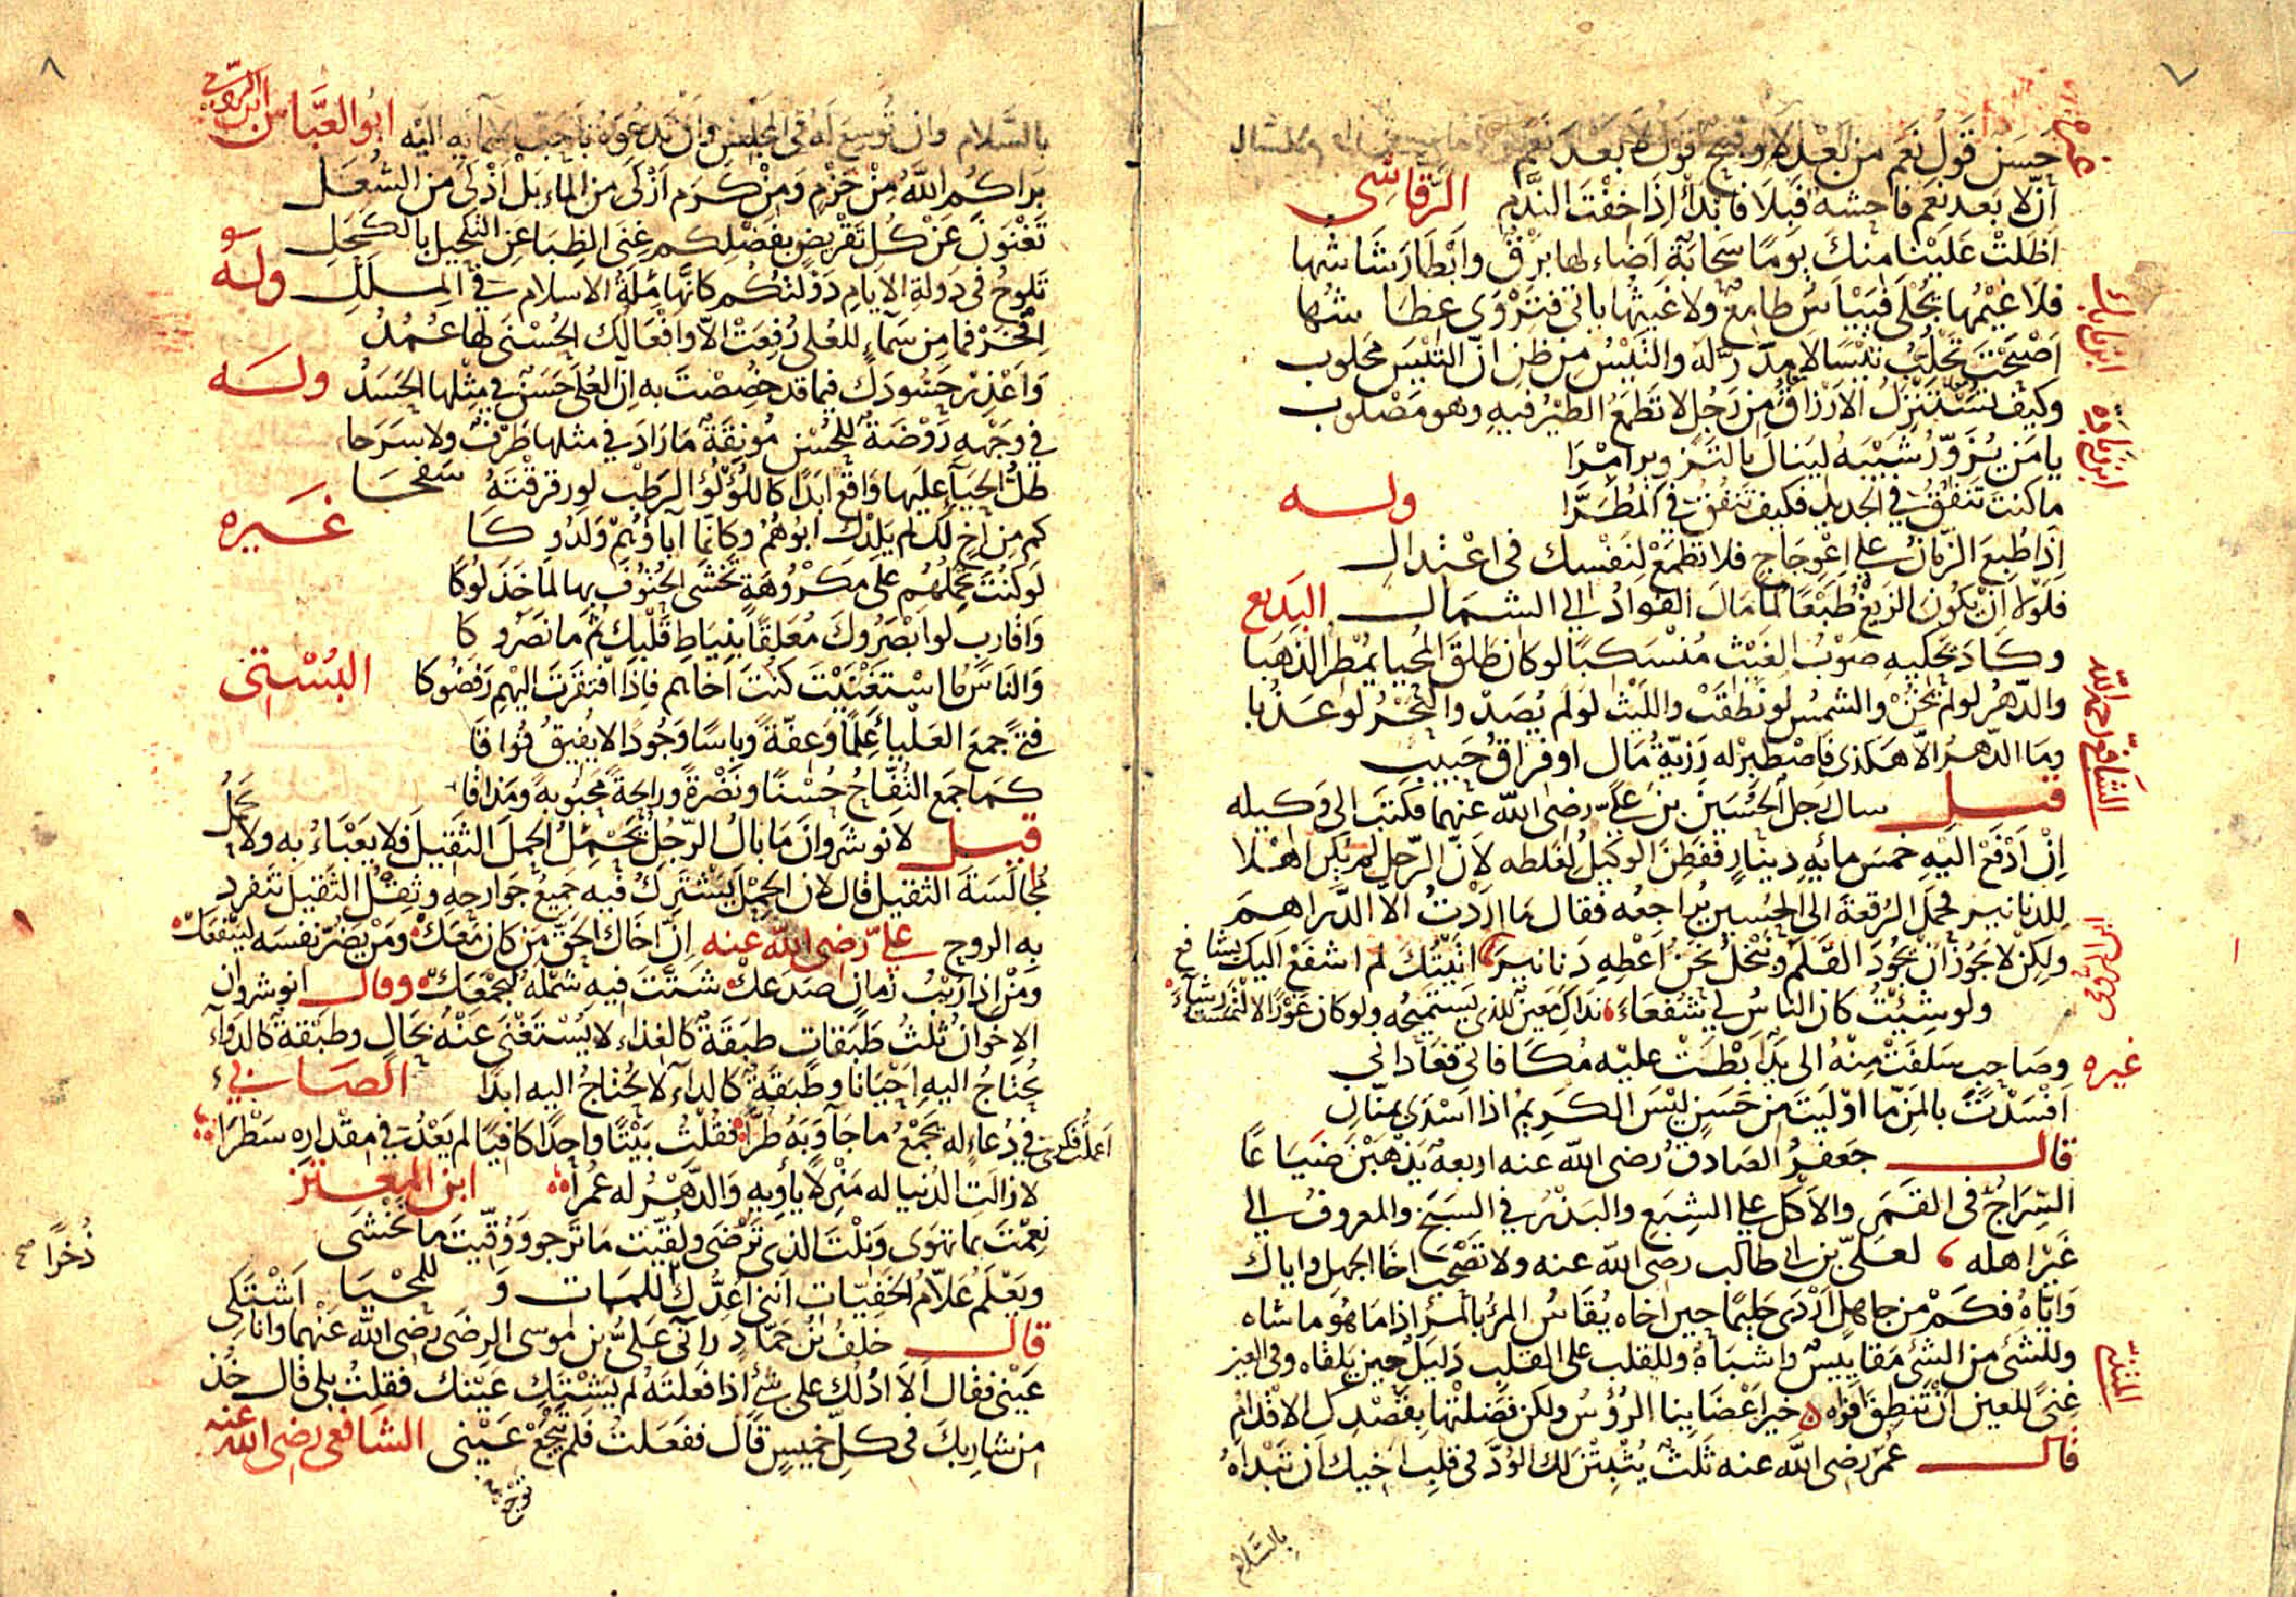 ٧
غيره
حَسَنٌ قَوْلُ نَعَم من بَعْدِ لَا وقبيح قول لا بعد نعم
انّ لا بعد نعم فاحشة فَبِلَا فابدَأْ اِذَا خِفْتَ النَّدَم الرَّقَاشِي
اظلّتْ عَلَيْنا منك يومًا سَحَابَة اضاء لها برْقٌ وابْطَا رَشَاشُها
فلا غَيْمُها يُجْلَى فيَيْأَسَ طامعٌ ولا غَيثها ياتى فتَرْوَى عِطَاشُها
اصْبَحْتَ تَحْلُبُ تَيْسًا لا مِدَرَّ له والتَّيْسُ مِن ظن انّ التَيْسَ مَحلوب
وكيف تُسْتَنْزَلُ الارْزاقُ من رَجُل لا تَطمَعُ الطيْرُ فيهِ وهو مَصْلوب
ابن نباته
يا مَن يُزَوّرُ شَيْبَه ليَنالَ بالتَزويرِ امْرَا
ما كنتَ تَنفُقُ في الجديد فكيف تَنفُق في المُطَرَّا ولـــه
اذا طُبِعَ الزّمانُ على اعْوِجَاجٍ فلا تطمَعْ لِنَفْسك فى اعْتِدال
فَلَوْلا انْ يكُونَ الزيْغُ طَبْعًا لما مَالَ الفؤادُ الى الشمال البَديع
وكَادَ يَحكيهِ صَوْبُ الغَيْثِ مُنْسَكبًا لو كان طَلقَ المُحيا يُمْطِر الذَهَبا
والدّهرُ لو لم يَخُنْ والشمسُ لو نَطقَتْ والليْث لو لم يُصَدْ والبَحْرُ لو عَذُبا
الشافعي رحمه الله
وما الدّهرُ الّا هكذى فاصْطَبِرْ له رَزيّةُ مَال او فراقُ حَبيبِ
قيـــل سال رجل الحُسَيْنَ بنَ عليّ رضى الله عنهما فكتبَ الى وَكيله
اِنْ ادْفَعْ اليْهِ خمسَ مائهِ دِينَارٍ ففَطِنَ الوَكيلُ لِغَلطه لانّ الرّجل لم يكن اهْلا
للدنانير فحمَلَ الرُقعةَ الى الحُسين يُراجِعُه فقال مَا ارَدْتُ الّا الدَّراهمَ
ولكِنْ لا يَجُوز انْ يجُودَ القَلَمُ ونَبْخَلُ نَحنُ اعْطِهِ دَنانيرَ اتَيْتُكَ لم اشفَعْ اليك بشافع
ولو شِئْتُ كان الناسُ لي شُفعَاءَ
غيره
وصَاحِبٍ سَلفَتْ مِنْهُ الى يَدٌ ابْطَتْ عليْه مُكَافاتى فعَادَانى
افْسَدْتَ بالمَنّ ما اوْلَيتَ مِن حَسَنٍ ليْسَ الكَرِيمُ اذا اسْدَى بمنّانِ
قالـــ جَعفرُ الصَادقُ رضى الله عنه اربعةٌ يَذهَبْنَ ضَيَاعًا
السِّرَاجُ فى القَمَرِ والاكل على الشِبَع والبَذْرُ في السَبَخِ والمعروفُ الى
غيْرِ اهله لعليّ بن ابى طالب رضى الله عنه ولا تَصْحَب اخَا الجهل واياك
واِيّاهُ فكم مِن جاهلٍ ارْدَى حَليمًا حين اخاه يُقاسُ المرْءُ بالمَرْءِ اذا مَا هُوَ ما شاه
وللشئ من الشئ مَقاييسٌ واشبَاهٌ وللقلب على القلبِ دَليلٌ حين يَلقاه وفى العين
غِنىً للعين انْ تَنطِقَ افْوَاه
المتنبّي
خيرُ اعْضَايِنا الرُؤُسُ ولكن فَضَلتْها بقَصْدِك الاقْدَامُ
قالـــ عُمَر رضى الله عنه ثَلَثٌ يُثْبِتْنَ لك الوُدَّ فى قلبِ اخِيك ان تَبْدَاهُ
بالسَّلام
٨
بالسَّلام وان تُوسِعَ لَهُ فى المجلس وان تدعوه باحبّ اسمآيه اليْه ابُو العبَّاس ابن الرومى
بَرَاكمُ اللهُ مِنْ حَزْمٍ وَمِنْ كَرَم ازْكَى مِن الماءِ بَلْ اذْكَى من الشُعَلِ
تَغْنَوْنَ عَنْ كُلِ تَقْرِيضٍ بفَضْلِكم غِنَى الظِبَا عن التَكحيل بالكَحَلِ
تَلوحُ فى دَولةِ الايام دَوْلتُكُم كانها مِلّةُ الاسلام في المِلَلِ ولَهُ
اِفْخَرْ فما من سَمَآءٍ للعُلى رُفِعَتْ الّا وافْعَالك الحُسْنَى لها عُمُدُ
وَاعْذِرْ حَسُودَك فيما قد خُصِصْتَ به انّ العُلَى حَسَنٌ فى مِثْلها الحَسَدُ ولـــه
في وَجْهه رَوْضَةٌ للحُسْنِ مُونِقَةٌ مَا رَادَ في مثلها طَرْفٌ ولا سَرَحا
طَلُّ الحَيَآءِ عليها وَاقعٌ ابدًا كاللؤْلؤ الرَطْب لو رقرقْتَهُ سَفَحا
غَيره
كم من اخٍ لك لم يَلِدْك ابُوهُمُ وكانّما آباؤُهُمْ وَلَدُوكَا
لو كنْتَ تَحْمِلُهُم على مَكْرُوهَةٍ تَخْشَى الحُتوُفَ بها لما خَذَلوُكَا
وَاقاربٍ لو ابْصَرُوك مُعَلقًا بنِيَاطِ قَلْبكَ ثُمَّ ما نَصَرُوكَا
وَالناسُ ما اسْتَغْنَيْتَ كنْتَ اخَاهم فاِذَا افتَقَرْتَ اليْهِم رَفَضُوكا البُسْتى
فتىً جمعَ العَلْيآءَ عِلمًا وعفّةً وباسًا وَجُودًا لا يفيقُ فُواقَا
كمَا جمَع التُفّاحُ حُسْنًا ونَضْرةً ورايحةً محَبُوبةً وَمَذاقَا
قيـــل لانوشَروَانَ مَا بالُ الرّجُل يَحْمِلُ الحِملَ الثَقيلَ فلا يَعْبَاءُ به ولا يَحمِلُ
مُجالَسَةَ الثقيل قال لان الحِمْلَ يَشْتَرِكُ فيه جَميعُ جَوَارحِهِ وثِقْلُ الثَقيل تَنفرد
به الروح عليّ رضى الله عنه اِنَّ اخاكَ الحَقّ مَن كان مَعَكْ ومَنْ يضُرّ نفسَه ليَنفَعَكْ
ومَنْ اذا رَيْبُ زَمانٍ صدَعَكْ شَتّتَ فيه شَمْلَهُ ليَجْمَعَكْ وقالـــ انوشروان
الاِخوانُ ثلثُ طَبَقات طبَقَةٌ كالغِذاءِ لا يُسْتَغْنَى عَنْهُ بحَالٍ وطبَقةٌ كالدواءِ
يُحْتاجُ اليهِ احْيَانا وطَبَقَةٌ كالداءِ لا يُحْتاجُ اليه ابدًا الصَابيء
اعْملْتُ فكرى في دُعَاءٍ له يَجْمَعُ ما جَآوَبَهُ طُرّا فقُلْتُ بَيْتًا واحِدًا كافيًا لم يَعْدُ في مِقْداره سَطْرَا
لا زالت الدُنيا له مَنْزِلا يأوِيهِ وَالدَّهْرُ له عُمْرَا ابن المعتز
نعِمْتَ بما تهوَى وَنِلْتَ الذى تَرْضَى ولُقّيتَ ما تَرجو ووُقّيتَ ما تَخْشَى
ويَعْلَمُ عَلّامُ الخَفيّات اننى اعُدُّك للمماتِ وَللمَحْيَا
ذُخرًا صح
قالـــ خلفُ بْنُ حَمّادٍ رآنى عَلىُّ بن موسى الرضى رضى الله عنهما وانا اشْتكى
عَيْنى فقال الَا ادُلّك على شئٍ اذا فعَلتَهُ لم تشتكِ عَيْنك فقلتُ بلى قال خُذ
من شاربك فى كلّ خميسٍ قال ففَعَلتُ فلم تَيْجَعْ عَيْنى الشافعى رضى الله عنه
توجع